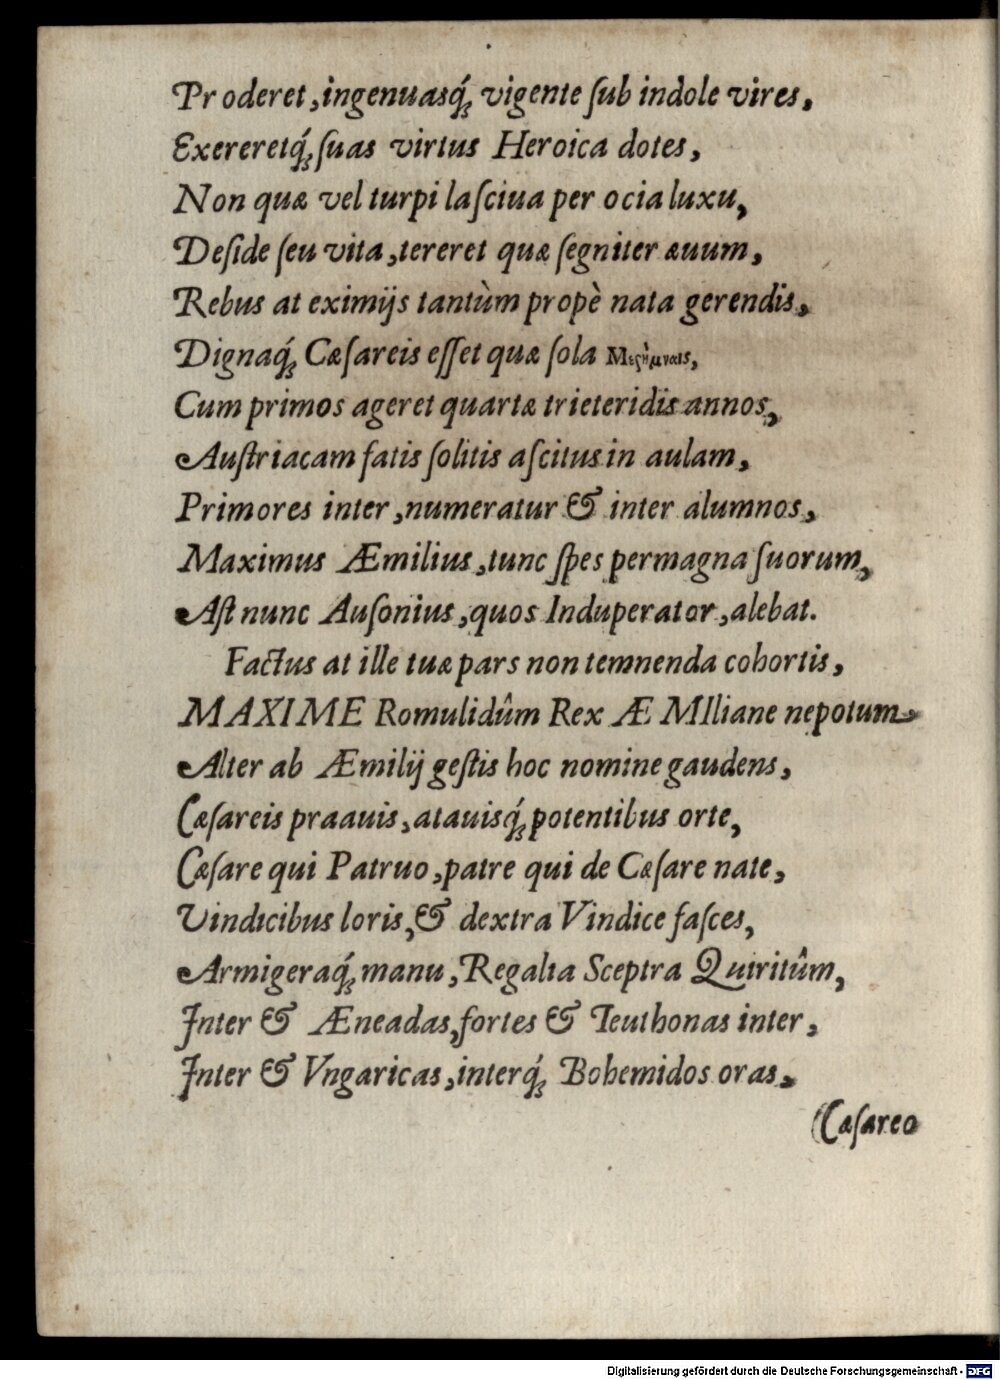 Proderet, ingenuasq́ꝫ vigente ſub indole vires,
Exereretq́ꝫ ſuas virtus Heroica dotes,
Non quæ vel turpi laſciua per ocia luxu,
Deſide ſeu vita, tereret quæ ſegniter æuum,
Rebus at eximijs tantùm propè nata gerendis,
Dignaq́ꝫ Cæſareis eſſet quæ ſola
Cum primos ageret quartæ trieteridis annos,
Auſtriacam fatis ſolitis aſcitus in aulam,
Primores inter, numeratur & inter alumnos,
Maximus Æmilius, tunc ſpes permagna ſuorum,
Aſt nunc Auſonius, quos Induperator, alebat.
Factus at ille tuæ pars non temnenda cohortis,
MAXIME Romulidûm Rex ÆMIliane nepotum,
Alter ab Æmilij geſtis hoc nomine gaudens,
Cæſareis praauis, atauisq́ꝫ potentibus orte,
Cæſare qui Patruo, patre qui de Cæſare nate,
Vindicibus loris, & dextra Vindice faſces,
Armigeraq́ꝫ manu, Regalia Sceptra Quiritûm,
Inter & Æneadas, fortes & Teuthonas inter,
Inter & Vngaricas, interq́ꝫ Bohemidos oras,
Cæſareo
Digitalisierung gefördert durch die Deutsche Forschungsgemeinschaft - DFG